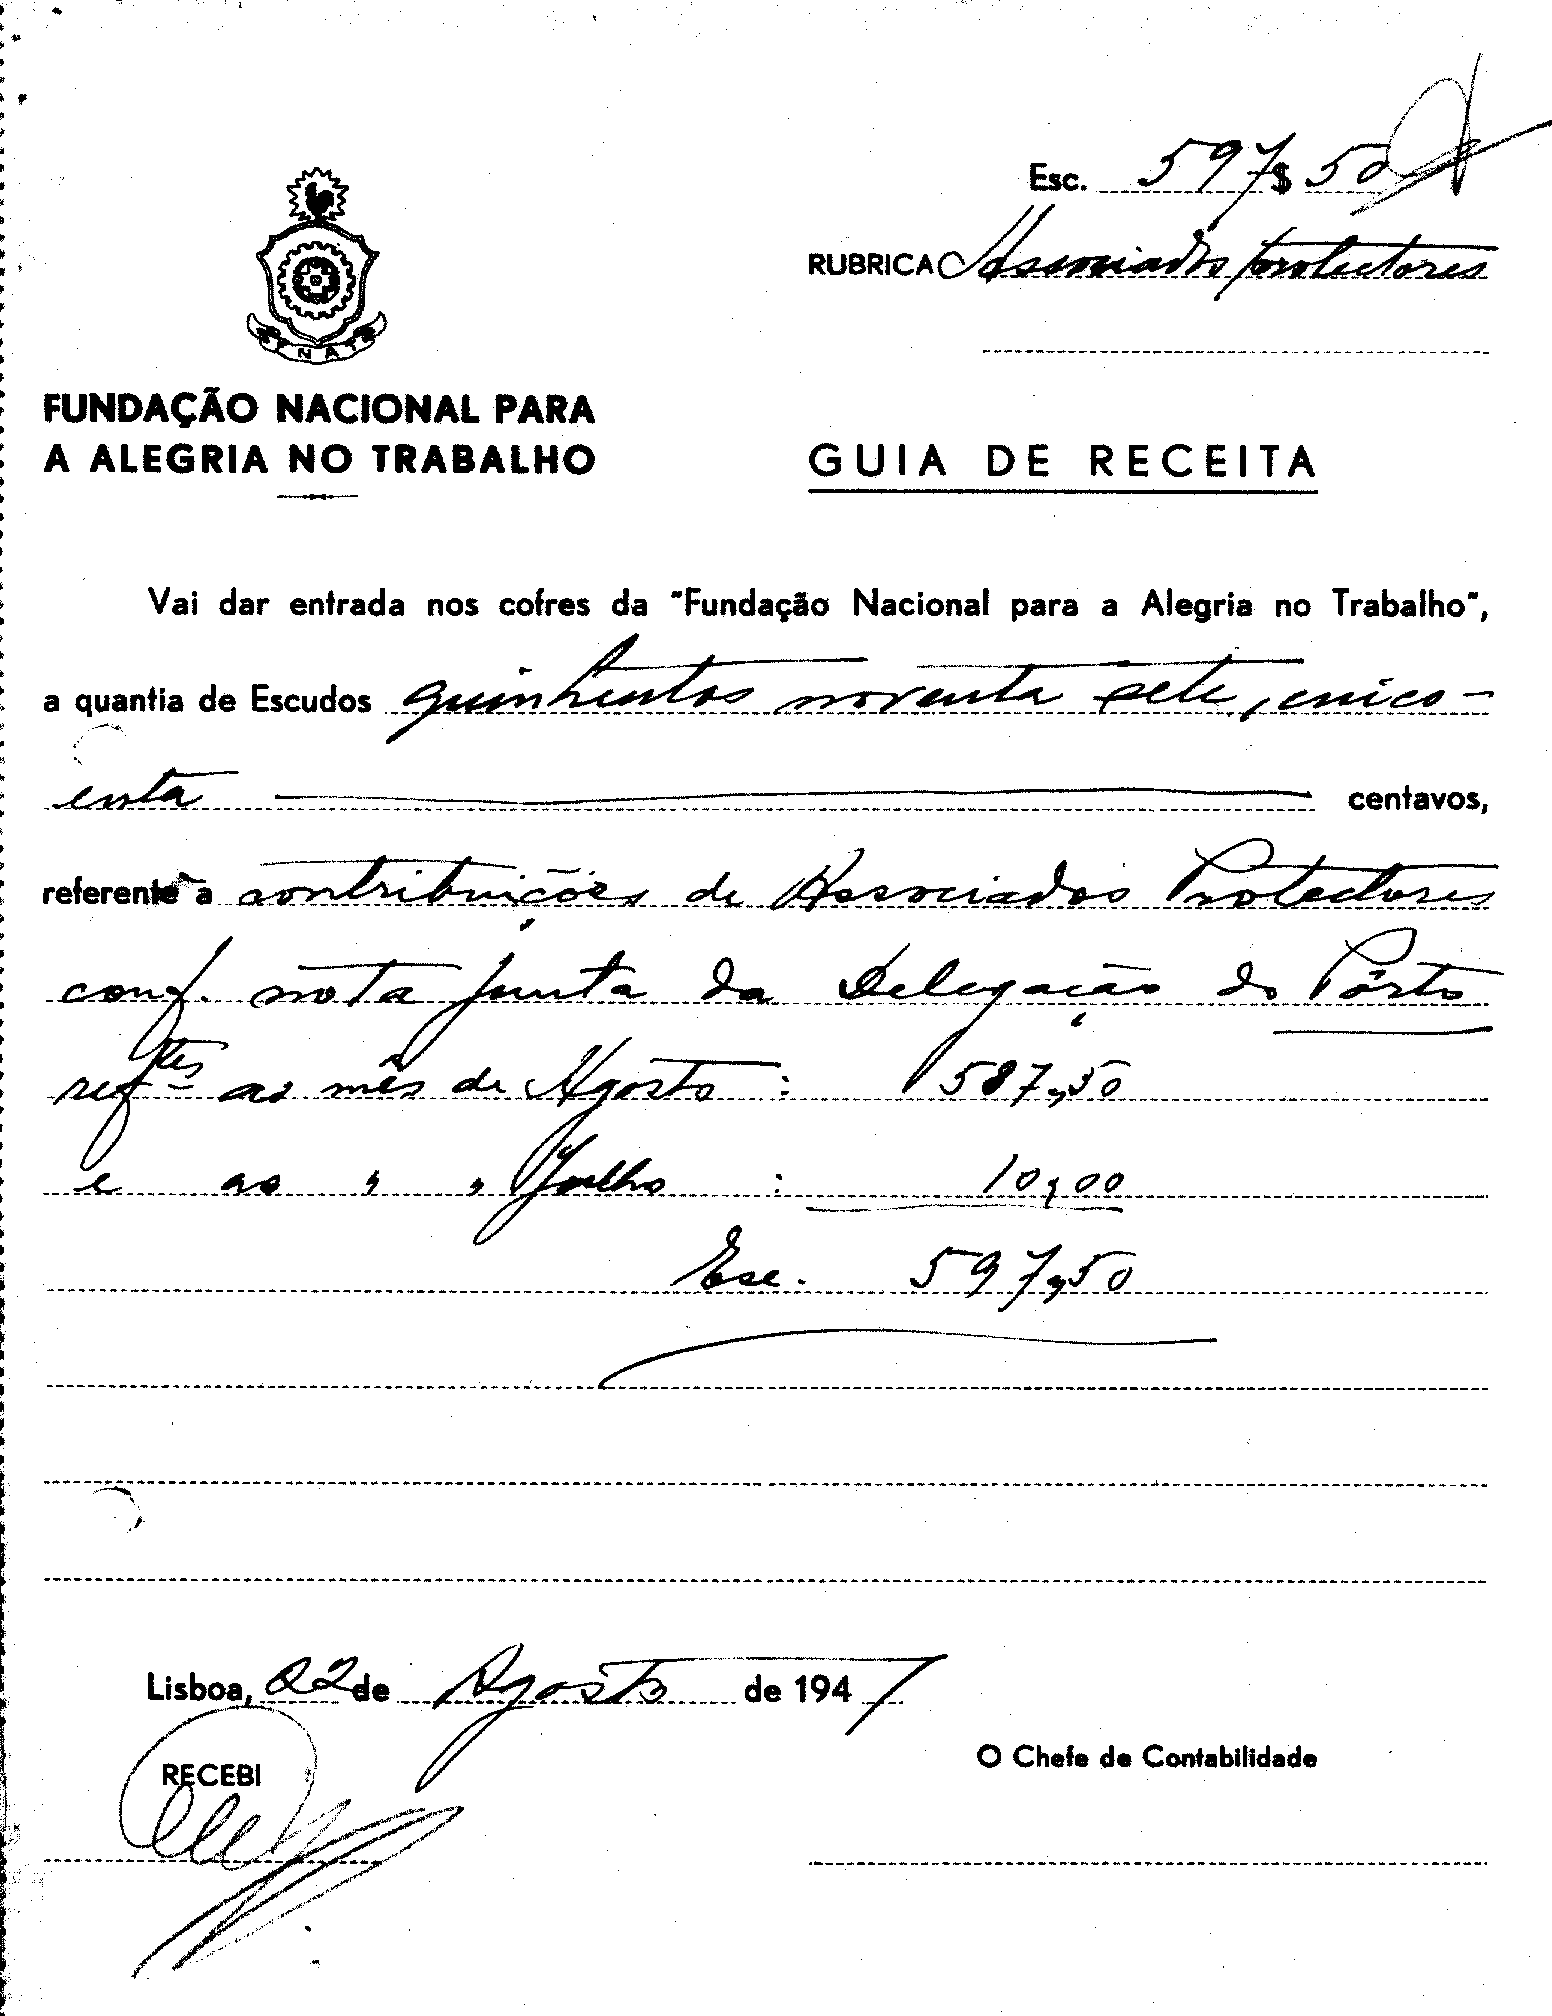 Esc. 597$50
RUBRICA Associados protectores
FNAT
FUNDAÇÃO NACIONAL PARA
A ALEGRIA NO TRABALHO
GUIA DE RECEITA
Vai dar entrada nos cofres da "Fundação Nacional para a Alegria no Trabalho",
a quantia de Escudos quinhentos noventa sete, cinco-
enta centavos,
referente a contribuições de Associados Protectores
conf. nota junta da Delegação do Pôrto
reftes ao mês de Agosto : 587,50
e ao " " Julho : 10,00
Esc. 597,50
Lisboa, 22 de Agosto de 1947
RECEBI
O Chefe de Contabilidade